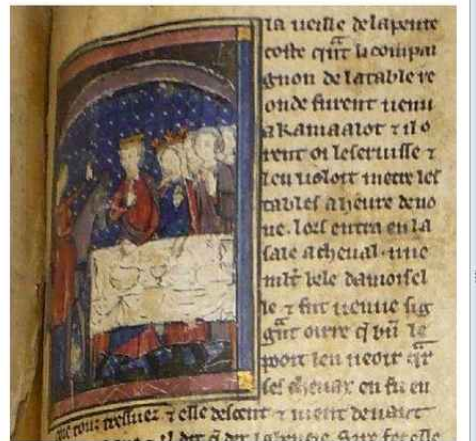 la ueille de la pente
coste qnt li compai
gnon de la table re
onde furent uenu
a kamaalot ⁊ il o
rent oi le seruisse ⁊
len uoloit metre les
tables a heure de no
ne. lors entra en la
sale a cheual une
mlt bele damoisel
le ⁊ fut uenue sig
gnt oirre q bn le
pooit len ueoir qr
ses cheuax en fu en
que touz tressuez ⁊ elle descent ⁊ uient deuant